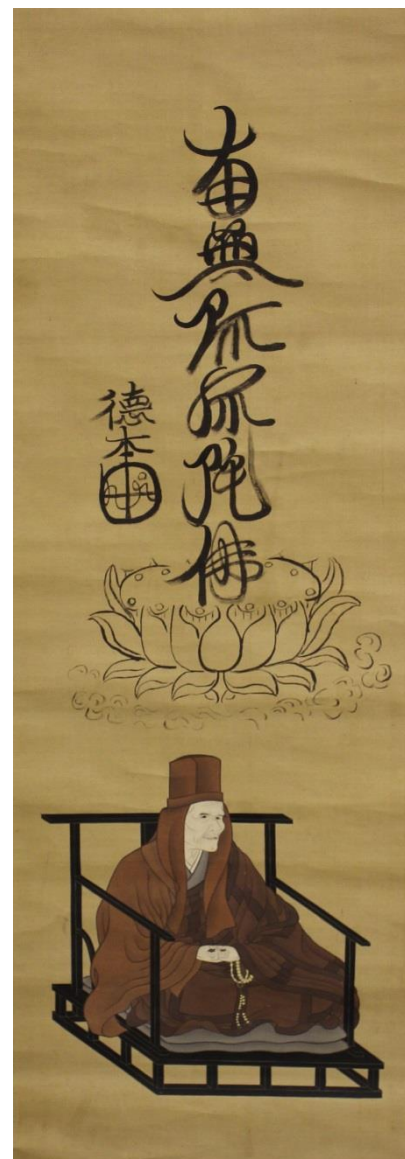 南無阿弥陀佛
徳本